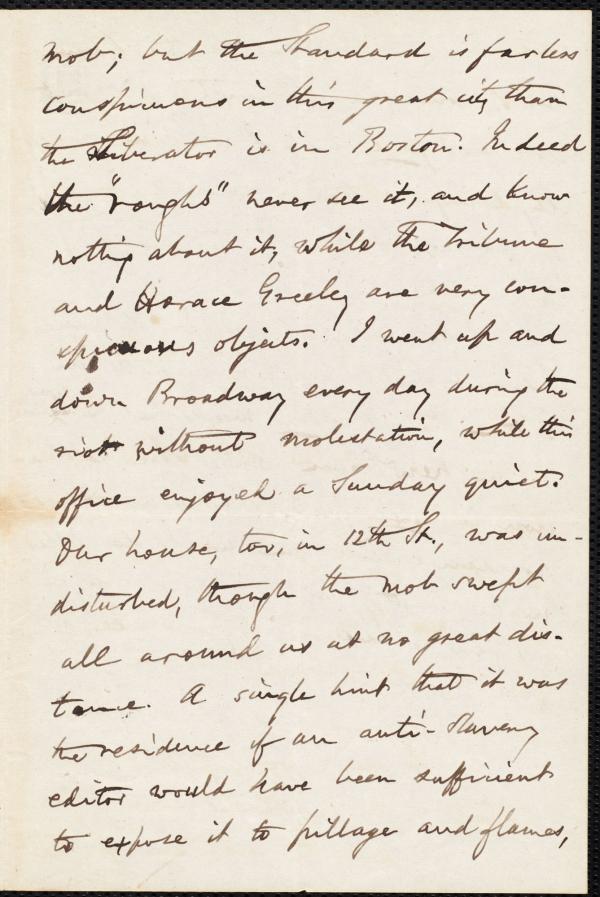 mob; but the Standard is far less
conspicuous in this great city than
the Liberator is in Boston. Indeed
the "roughs" never see it, and know
nothing about it, while the Tribune
and Horace Greeley are very con-
spicuous objects. I went up and
down Broadway every day during the
riot without molestation, while this
office enjoyed a Sunday quiet.
Our house, too, in 12th St., was un-
disturbed, though the mob swept
all around us at no great dis-
tance. A single hint that it was
the residence of an anti-slavery
editor would have been sufficient
to expose it to pillage and flames,